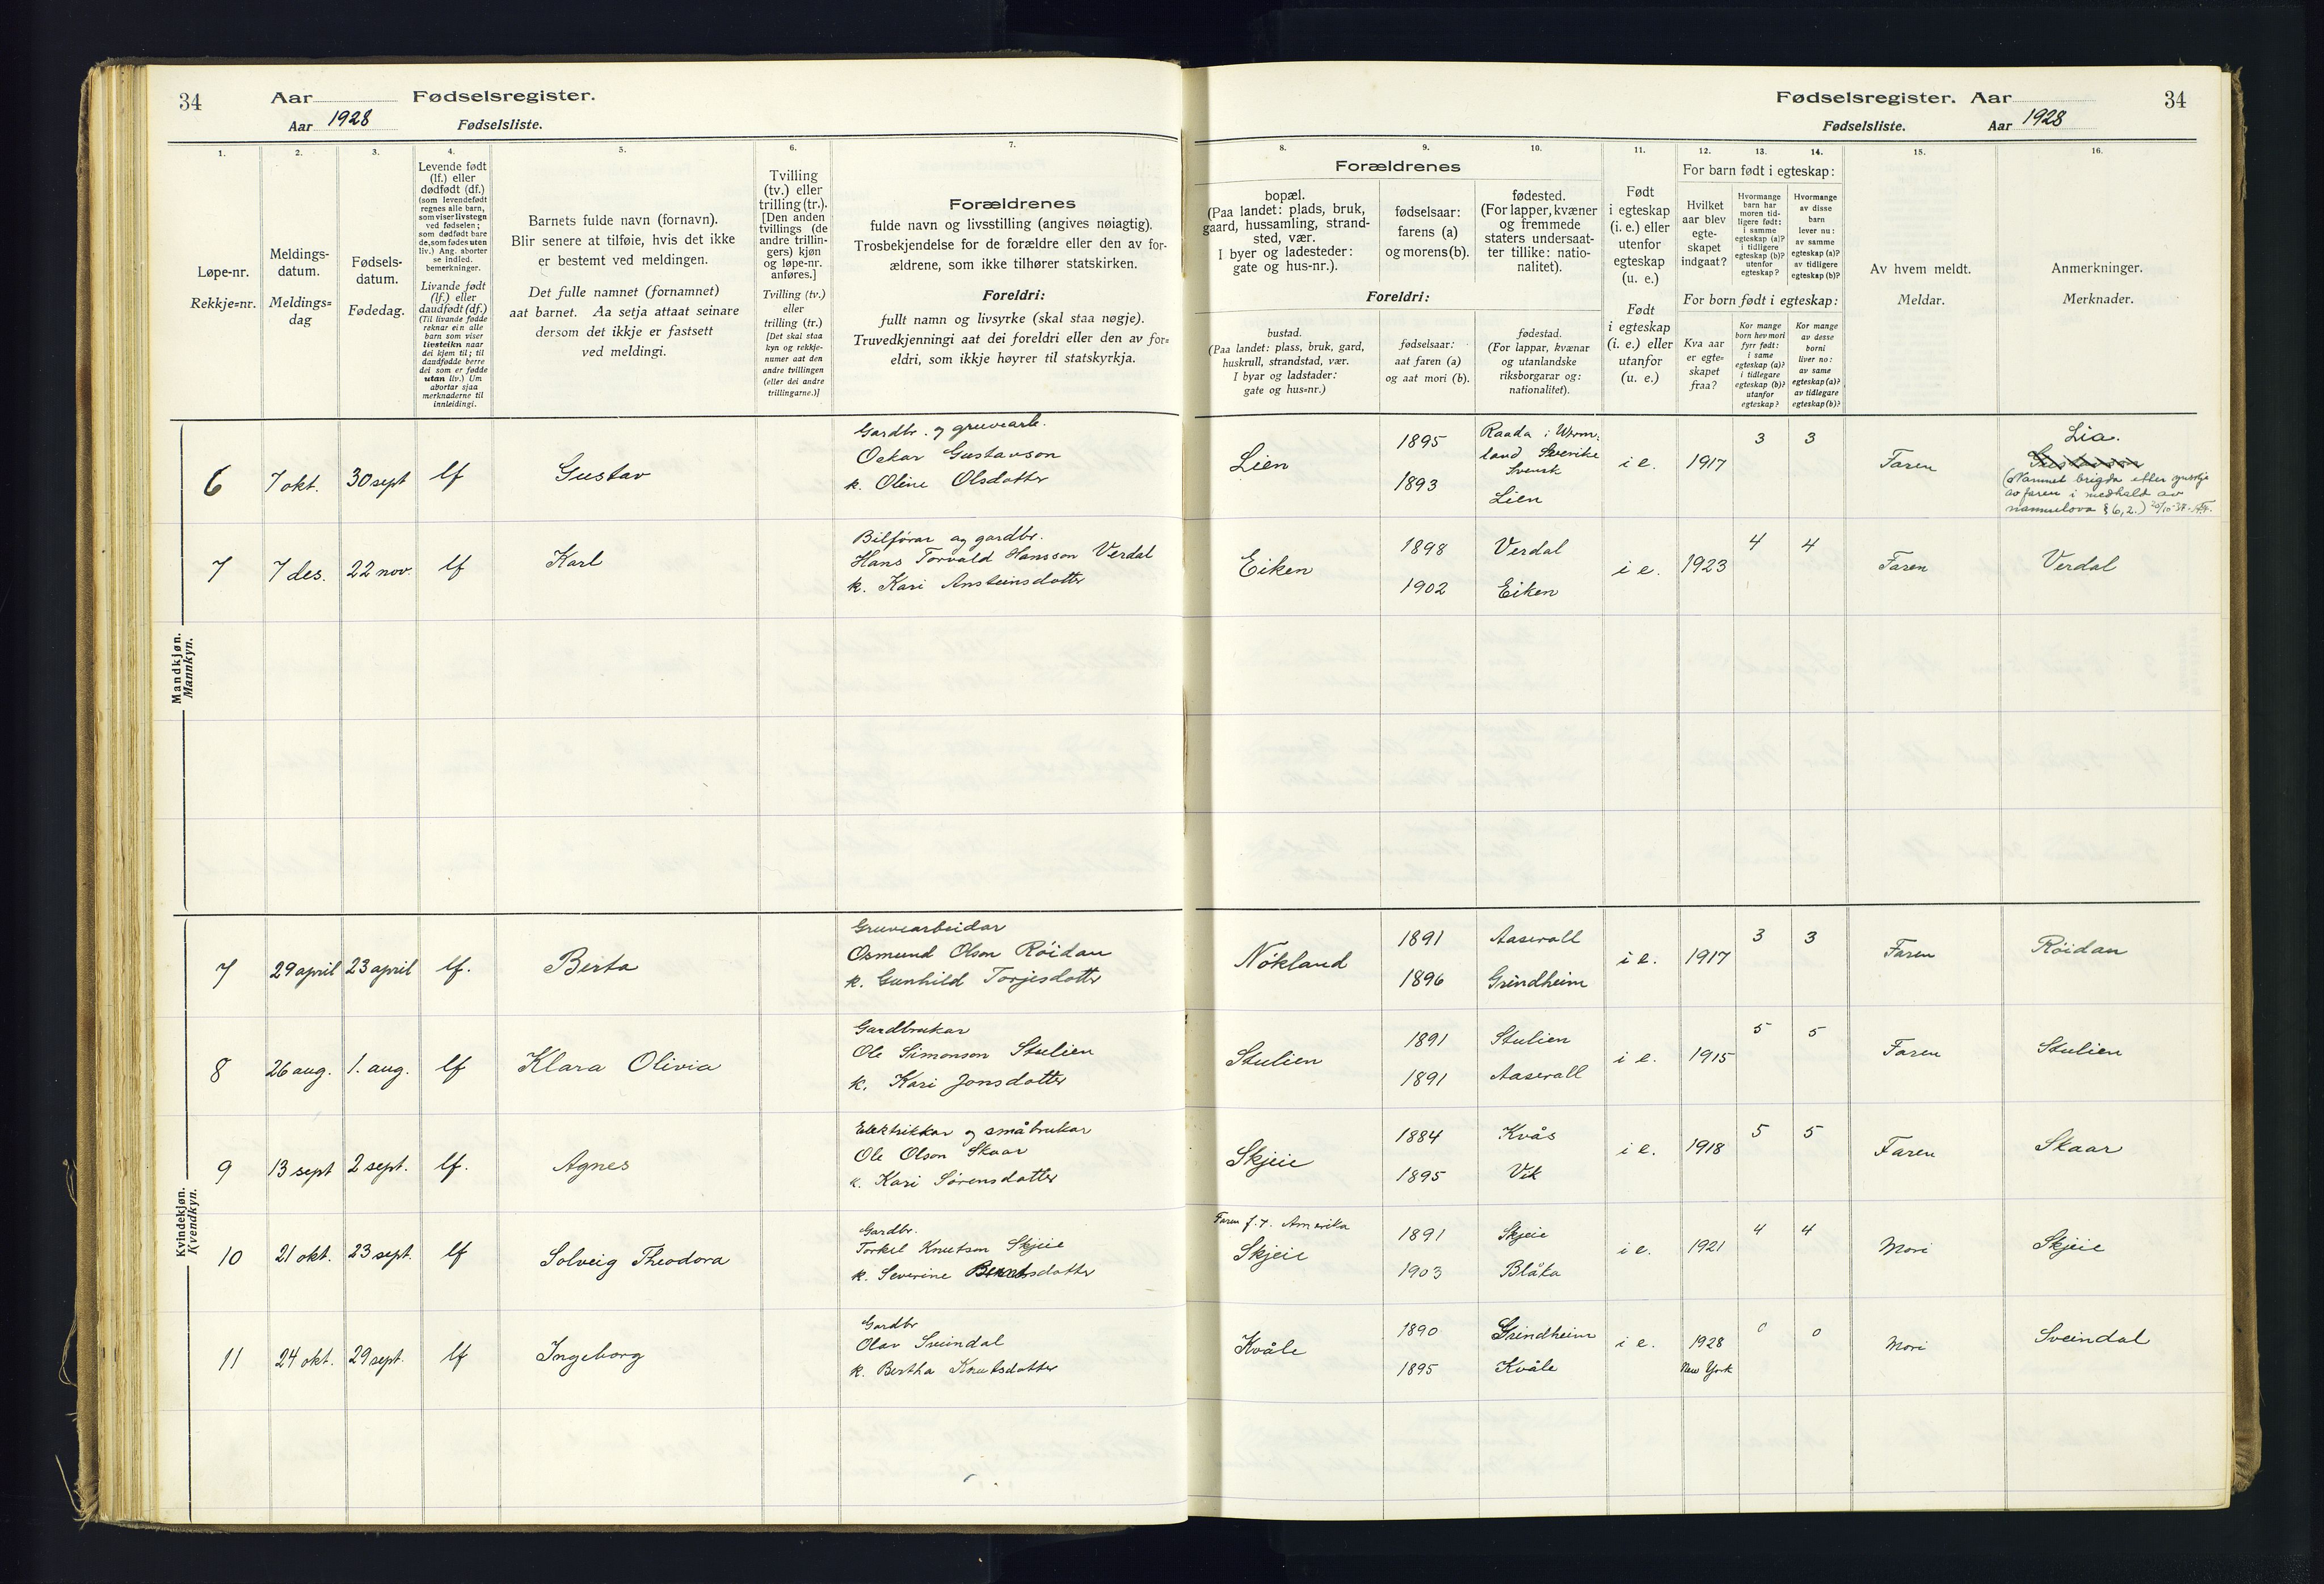 34
Aar
Fødselsregister.
Aar 1928
Fødselsliste.
1.
Løpe-nr.
Rekkje=nr.
2.
Meldings-
datum.
Meldings=
dag
3.
Fødsels-
datum.
Fødedag.
4.
Levende født
(lf.) eller
dødfødt (df.)
(som levendefødt
regnes alle barn,
som viser livstegn
ved fødselen;
som dødfødt bare
de, som fødes uten
liv.) Ang. aborter
se indled.
bemerkninger.
Livande født
(lf.) eller
daudfødt (df.)
(Til livande fødde
reknar ein alle
barn som viser
livsteikn naar
dei kjem til; til
daudfødde berre
dei som er fødde
utan liv.) Um
abortar sjaa
merknaderne til
innleidingi.
5.
Barnets fulde navn (fornavn).
Blir senere at tilføie, hvis det ikke
er bestemt ved meldingen.
Det fulle namnet (fornamnet)
aat barnet. Aa setja attaat seinare
dersom det ikkje er fastsett
ved meldingi.
6.
Tvilling
(tv.) eller
trilling (tr.).
[Den anden
tvillings (de
andre trillin-
gers) kjøn
og løpe-nr.
anføres.]
Tvilling (tv.)
eller
trilling (tr.)
[Det skal staa
kyn og rekkje-
numer aat den
andre tvillingen
(eller dei andre
trillingarne.)]
7.
Forældrenes
fulde navn og livsstilling (angives nøiagtig).
Trosbekjendelse for de forældre eller den av for-
ældrene, som ikke tilhører statskirken.
Foreldri:
fullt namn og livsyrke (skal staa nøgje).
Truvedkjenningi aat dei foreldri eller den av for=
eldri, som ikkje høyrer til statskyrkja.
Mandkjøn.
Mannkyn.
Gardbr. og gruvearb.
6 7 okt. 30 sept lf Gustav Oskar Gustavson
k. Oline Olsdotter
Bilførar og gardbr.
7 7 des. 22 nov. lf Karl Hans Torvald Hansson Verdal
k. Kari Ansteinsdotter
Kvindekjøn.
Kvendkyn.
Gruvearbeidar
7 29 april 23 april lf. Berta Osmund Olson Röidan
k. Gunhild Torjesdotter
Gardbrukar
8 26 aug. 1. aug. lf Klara Olivia Ole Simonson Stulien
k. Kari Jonsdotter
Elektrikkar og småbrukar
9 13 sept 2 sept. lf. Agnes Ole Olson Skaar
k. Kari Sørensdotter
Gardbr.
10 21 okt. 23 sept. lf Solveig Theodora Torkel Knutson Skjeie
k. Severine Berntsdotter
Gardbr
11 24 okt. 29 sept. lf Ingeborg Olav Sveindal
k. Bertha Knutsdotter
Fødselsregister. Aar
34
Fødselsliste.
Aar 1928
8. 9. 10.
Forældrenes
bopæl.
(Paa landet: plads, bruk,
gaard, hussamling, strand-
sted, vær.
I byer og ladesteder:
gate og hus-nr.).
fødselsaar:
farens (a)
og morens (b).
fødested.
(For lapper, kvæner
og fremmede
staters undersaat-
ter tillike: natio-
nalitet).
Foreldri:
bustad.
(Paa landet: plass, bruk, gard,
huskrull, strandstad, vær.
I byar og ladstader:
gate og hus=nr.)
fødselsaar:
aat faren (a)
og aat mori (b).
fødestad.
(For lappar, kvænar
og utanlandske
riksborgarar og:
nationalitet).
11.
Født
i egteskap
(i. e.) eller
utenfor
egteskap
(u. e.)
Født
i egteskap
(i. e.) eller
utanfor
(u. e.)
12. 13. 14.
For barn født i egteskap:
Hvilket
aar blev
egte-
skapet
indgaat?
Hvormange
barn har
moren tid-
ligere født:
i samme
egteskap (a)?
i tidligere
egteskap (b)?
utenfor
egteskap?
Hvormange
av disse
barn
lever nu:
av samme
egteskap (a)?
av tidligere
egteskap (b)?
For born født i egteskap:
Kva aar
er egte=
skapet
fraa?
Kor mange
born hev mori
fyrr født:
i same
egteskap (a)?
i tidlegare
egteskap (b)?
utanfor
egteskap?
Kor mange
av desse
borni
liver no:
av same
egteskap (a)?
av tidlegare
egteskap (b)?
15.
Av hvem meldt.
Meldar.
16.
Anmerkninger.
Merknader.
1895 Raada i Werm- 3 3 Lia.
land Sverike
Lien Svensk i e. 1917 Faren
1893 Lien
(Namnet brigda etter ynskje
av faren i medhald av
namnelova § 6, 2.)
1898 Verdal 4 4
Eiken i e. 1923 Faren Verdal
1902 Eiken
1891 Aaserall 3 3
Nökland i e. 1917 Faren Röidan
1896 Grindheim
1891 Stulien 5 5
Stulien i e. 1915 Faren Stulien
1891 Aaserall
1884 Kvås 5 5
Skjeie i e. 1918 Faren Skaar
1895 Vik
Faren f. t. Amerika 1891 Skjeie 4 4
Skjeie i e. 1921 Mori Skjeie
1903 Blåka
1890 Grindheim 0 0
Kvåle i e. 1928 Mori Sveindal
1895 Kvåle New York